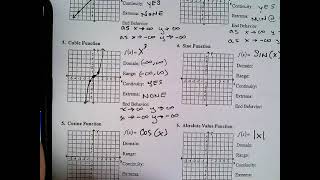 Continuity: YES
Extrema: NONE
End Behavior:
as x→∞ y→∞
as x→-∞ y→-∞
YES
Extrema:
End Behavior
as x→∞
as x→-∞
3. Cubic Function
f(x)= x³
Domain: (-∞,∞)
Range: (-∞,∞)
Continuity: YES
Extrema: NONE
End Behavior:
x→∞ y→∞
x→-∞ y→-∞
4. Sine Function
f(x)= sin(x)
Domain:
Range:
Continuity:
Extrema:
End Behavior
5. Cosine Function
f(x)= cos(x)
Domain:
Range:
Continuity:
Extrema:
6. Absolute Value Function
f(x)= |x|
Domain:
Range:
Continuity:
Extrema: